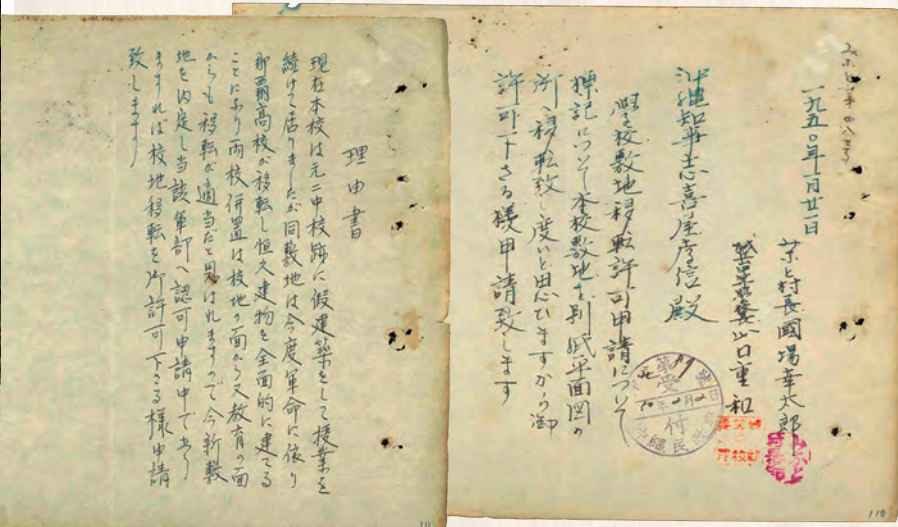 一九五〇年一月廿一日
みなと村長國場幸太郎
山口重和
沖縄知事志喜屋孝信殿
學校敷地移転許可申請について
標記について本校敷地を別紙平面図の
所へ移転致し度いと思ひますから御
許可下さる様申請致します
受付
理由書
現在本校は元二中校跡に仮建築をして授業を
続けて居りましたが同敷地は今度軍命に依り
那覇高校が移転し恒久建物を全面的に建てる
ことになり両校併置は校地の面から又教育の面
からも移転が適当だと思はれますので今新敷
地を内定し当該軍部へ認可申請中であり
ますれば校地移転を御許可下さる様申請
致します
110
111